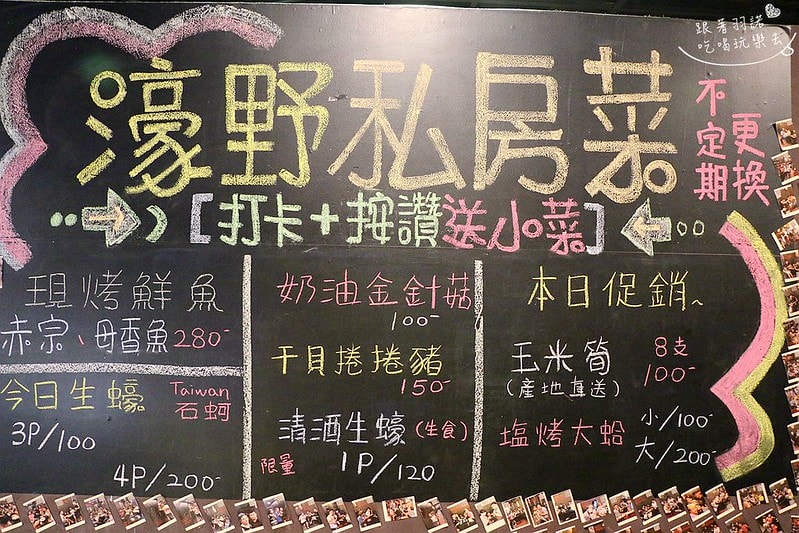 跟著羽諾
吃喝玩樂去
濠野私房菜
不定期更換
[打卡+按讚送小菜]
現烤鮮魚
赤宗、母香魚 280-
今日生蠔
Taiwan
石蚵
3P/100
4P/200-
奶油金針菇
100-
干貝捲捲豬
150-
清酒生蠔(生食)
限量 1P/120
本日促銷~
玉米筍 8支
(產地直送) 100-
塩烤大蛤 小/100-
大/200-